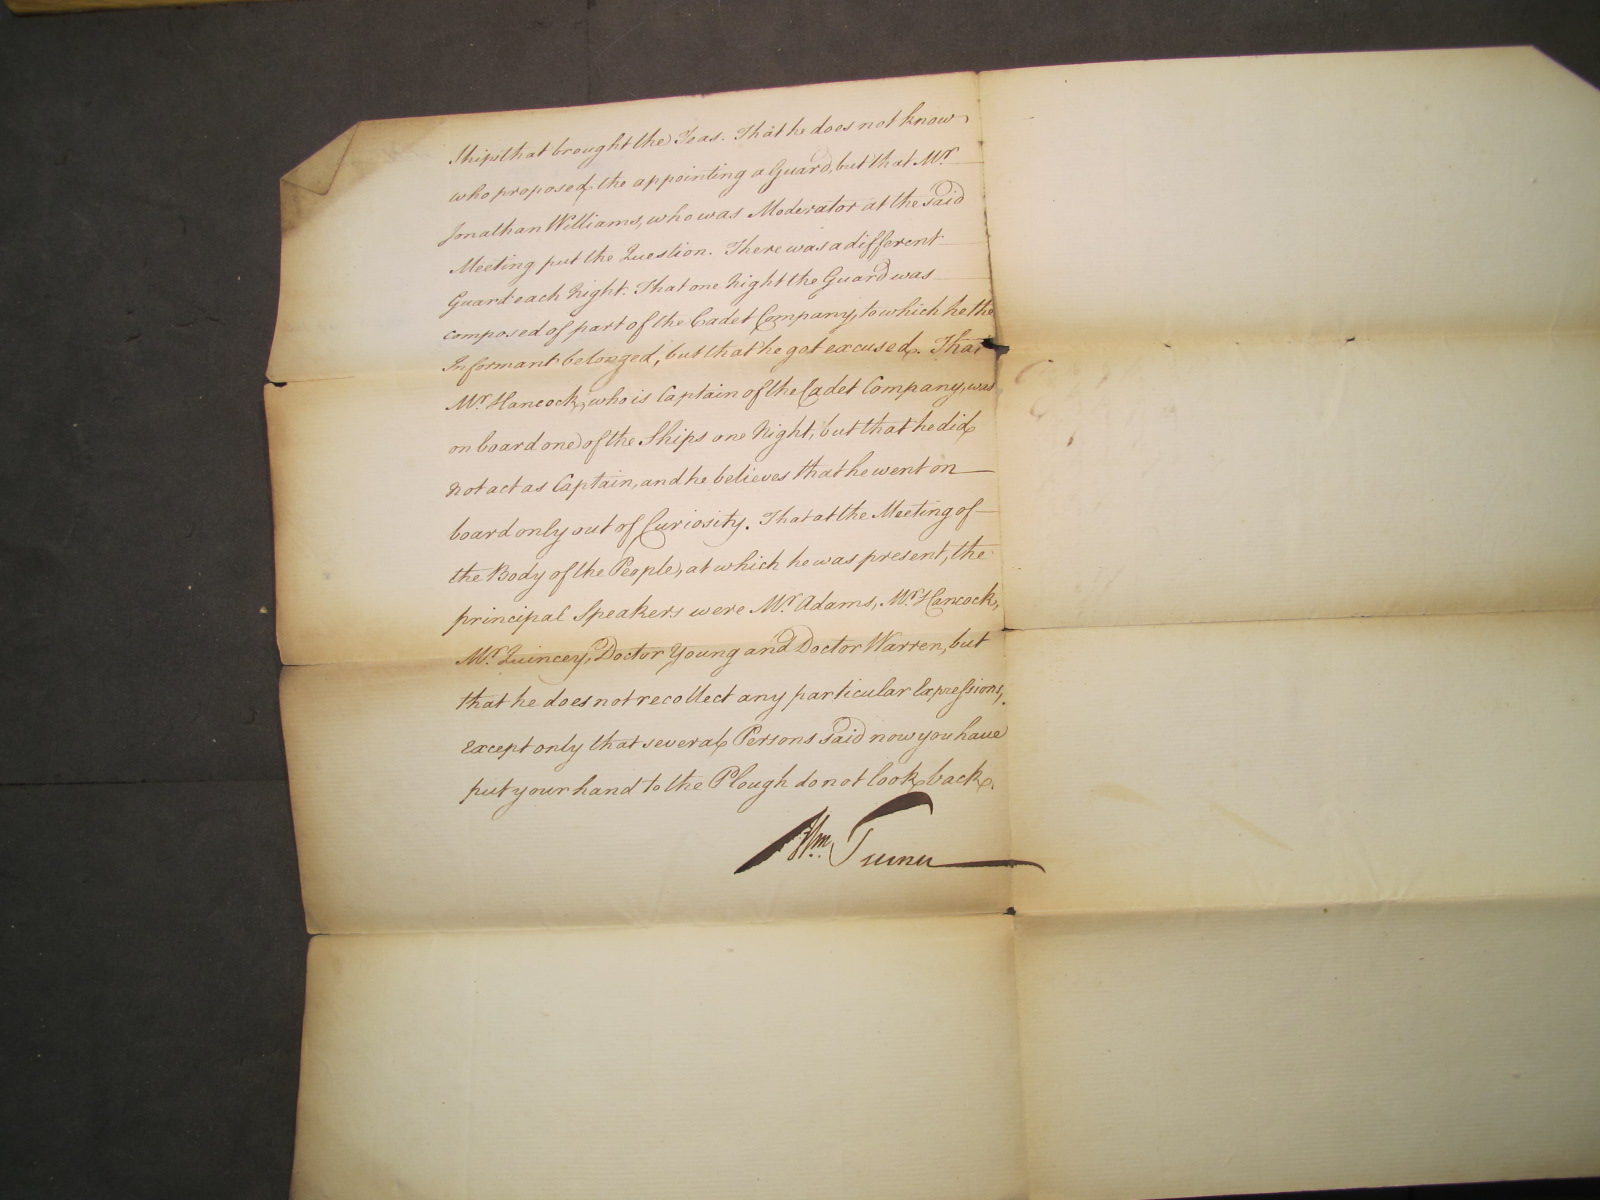 Ships that brought the Teas. That he does not know
who proposed the appointing a Guard, but that Mr.
Jonathan Williams, who was Moderator at the said
Meeting put the Question. There was a different
Guard each Night. That one Night the Guard was
composed of part of the Cadet Company, to which he the
Informant belonged, but that he got excused. That
Mr. Hancock, who is Captain of the Cadet Company, was
on board one of the Ships one Night, but that he did
not act as Captain, and he believes that he went on
board only out of Curiosity. That at the Meeting of
the Body of the People, at which he was present, the
principal Speakers were Mr. Adams, Mr. Hancock,
Mr. Quincey, Doctor Young and Doctor Warren, but
that he does not recollect any particular Expressions,
Except only that several Persons said now you have
put your hand to the Plough do not look back.
Wm. Turner